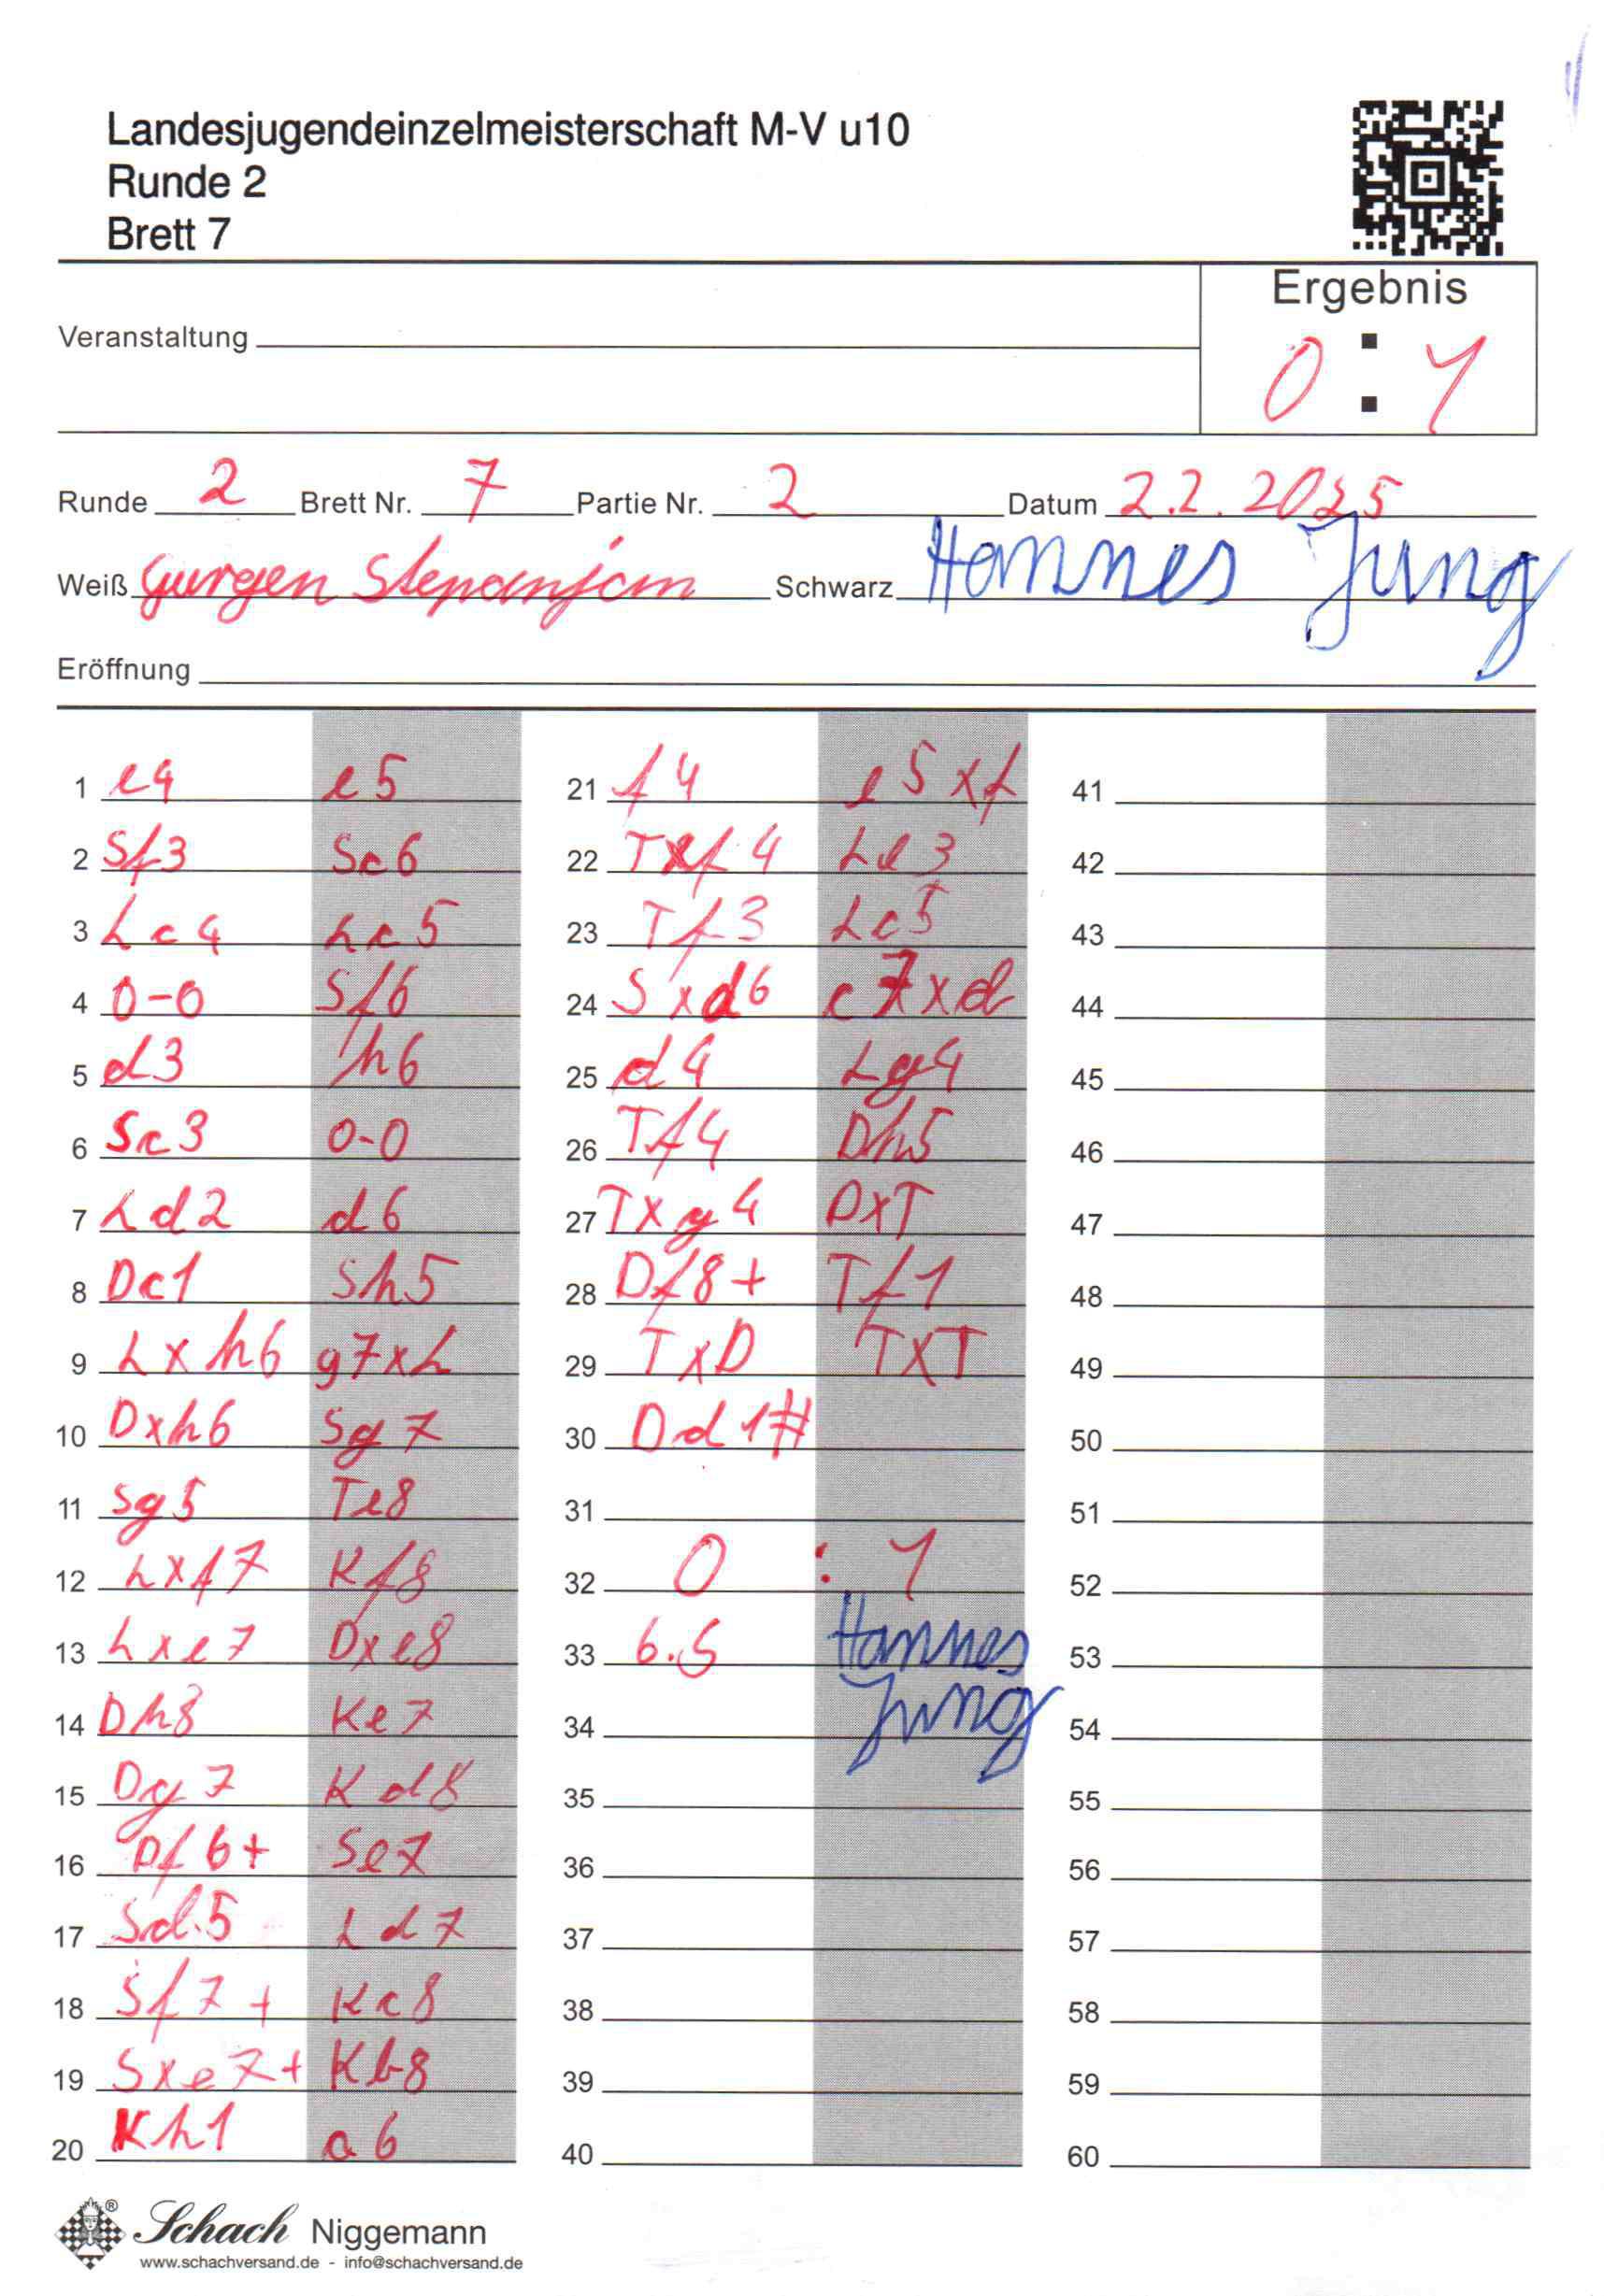 Landesjugendeinzelmeisterschaft M-V u10
Runde 2
Brett 7
Ergebnis
Veranstaltung
0 : 1
Runde 2 Brett Nr. 7 Partie Nr. 2 Datum 2.2.2025
Weiß Gurgen Stepanjan Schwarz Hannes Jung
Eröffnung
1 e4 e5
2 Sf3 Sc6
3 Lc4 Lc5
4 0-0 Sf6
5 d3 h6
6 Sc3 0-0
7 Ld2 d6
8 Dc1 Sh5
9 Lxh6 g7xL
10 Dxh6 Sg7
11 Sg5 Te8
12 Lxf7 Kf8
13 Lxe7 Dxe8
14 Dh8 Ke7
15 Dg7 Kd8
16 Df6+ Se7
17 Sd5 Ld7
18 Sf7+ Kc8
19 Sxe7+ Kb8
20 Kh1 a6
21 f4 e5xf
22 Txf4 Le3
23 Tf3 Lc5
24 Sxd6 c7xd
25 d4 Lg4
26 Tf4 Dh5
27 Txg4 DxT
28 Df8+ Tf1
29 TxD TxT
30 Dd1#
31
32 0 : 1
33 6.5 Hannes
34 Jung
35
36
37
38
39
40
41
42
43
44
45
46
47
48
49
50
51
52
53
54
55
56
57
58
59
60
Schach Niggemann
www.schachversand.de - info@schachversand.de